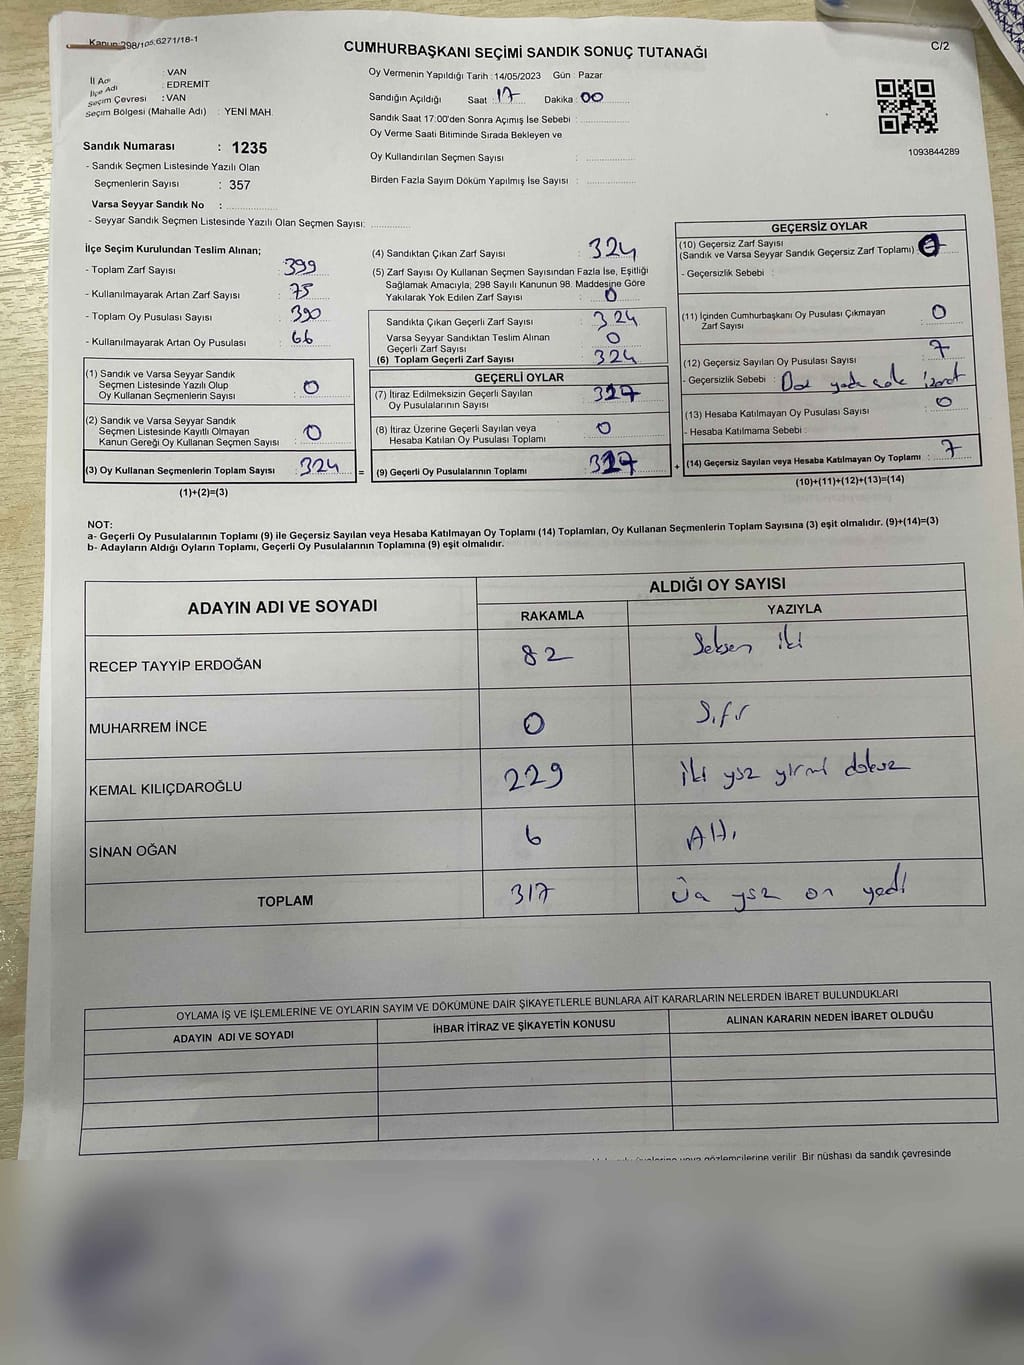 Kanun:298/105;6271/18-1
CUMHURBAŞKANI SEÇİMİ SANDIK SONUÇ TUTANAĞI
C/2
İl Adı : VAN
İlçe Adı : EDREMİT
Seçim Çevresi : VAN
Seçim Bölgesi (Mahalle Adı) : YENİ MAH.
Oy Vermenin Yapıldığı Tarih : 14/05/2023 Gün : Pazar
Sandığın Açıldığı Saat : 17 Dakika : 00
Sandık Saat 17:00'den Sonra Açımış İse Sebebi :
Oy Verme Saati Bitiminde Sırada Bekleyen ve
Oy Kullandırılan Seçmen Sayısı :
Birden Fazla Sayım Döküm Yapılmış İse Sayısı :
1093844289
Sandık Numarası : 1235
- Sandık Seçmen Listesinde Yazılı Olan
Seçmenlerin Sayısı : 357
Varsa Seyyar Sandık No :
- Seyyar Sandık Seçmen Listesinde Yazılı Olan Seçmen Sayısı:
İlçe Seçim Kurulundan Teslim Alınan;
- Toplam Zarf Sayısı : 399
- Kullanılmayarak Artan Zarf Sayısı : 75
- Toplam Oy Pusulası Sayısı : 390
- Kullanılmayarak Artan Oy Pusulası : 66
(1) Sandık ve Varsa Seyyar Sandık
Seçmen Listesinde Yazılı Olup
Oy Kullanan Seçmenlerin Sayısı : 0
(2) Sandık ve Varsa Seyyar Sandık
Seçmen Listesinde Kayıtlı Olmayan
Kanun Gereği Oy Kullanan Seçmen Sayısı : 0
(3) Oy Kullanan Seçmenlerin Toplam Sayısı : 324 =
(1)+(2)=(3)
(4) Sandıktan Çıkan Zarf Sayısı : 324
(5) Zarf Sayısı Oy Kullanan Seçmen Sayısından Fazla İse, Eşitliği
Sağlamak Amacıyla; 298 Sayılı Kanunun 98. Maddesine Göre
Yakılarak Yok Edilen Zarf Sayısı : 0
Sandıkta Çıkan Geçerli Zarf Sayısı : 324
Varsa Seyyar Sandıktan Teslim Alınan
Geçerli Zarf Sayısı : 0
(6) Toplam Geçerli Zarf Sayısı : 324
GEÇERLİ OYLAR
(7) İtiraz Edilmeksizin Geçerli Sayılan
Oy Pusulalarının Sayısı : 317
(8) İtiraz Üzerine Geçerli Sayılan veya
Hesaba Katılan Oy Pusulası Toplamı : 0
(9) Geçerli Oy Pusulalarının Toplamı : 317 +
GEÇERSİZ OYLAR
(10) Geçersiz Zarf Sayısı
(Sandık ve Varsa Seyyar Sandık Geçersiz Zarf Toplamı) : 0
- Geçersizlik Sebebi :
(11) İçinden Cumhurbaşkanı Oy Pusulası Çıkmayan
Zarf Sayısı : 0
(12) Geçersiz Sayılan Oy Pusulası Sayısı : 7
- Geçersizlik Sebebi :
(13) Hesaba Katılmayan Oy Pusulası Sayısı : 0
- Hesaba Katılmama Sebebi :
(14) Geçersiz Sayılan veya Hesaba Katılmayan Oy Toplamı : 7
(10)+(11)+(12)+(13)=(14)
NOT:
a- Geçerli Oy Pusulalarının Toplamı (9) ile Geçersiz Sayılan veya Hesaba Katılmayan Oy Toplamı (14) Toplamları, Oy Kullanan Seçmenlerin Toplam Sayısına (3) eşit olmalıdır. (9)+(14)=(3)
b- Adayların Aldığı Oyların Toplamı, Geçerli Oy Pusulalarının Toplamına (9) eşit olmalıdır.
ADAYIN ADI VE SOYADI ALDIĞI OY SAYISI
RAKAMLA YAZIYLA
RECEP TAYYİP ERDOĞAN 82 Seksen iki
MUHARREM İNCE 0 Sıfır
KEMAL KILIÇDAROĞLU 229 iki yüz yirmi dokuz
SİNAN OĞAN 6 Altı
TOPLAM 317 Üç yüz on yedi
OYLAMA İŞ VE İŞLEMLERİNE VE OYLARIN SAYIM VE DÖKÜMÜNE DAİR ŞİKAYETLERLE BUNLARA AİT KARARLARIN NELERDEN İBARET BULUNDUKLARI
ADAYIN ADI VE SOYADI İHBAR İTİRAZ VE ŞİKAYETİN KONUSU ALINAN KARARIN NEDEN İBARET OLDUĞU
gözlemcilerine verilir. Bir nüshası da sandık çevresinde